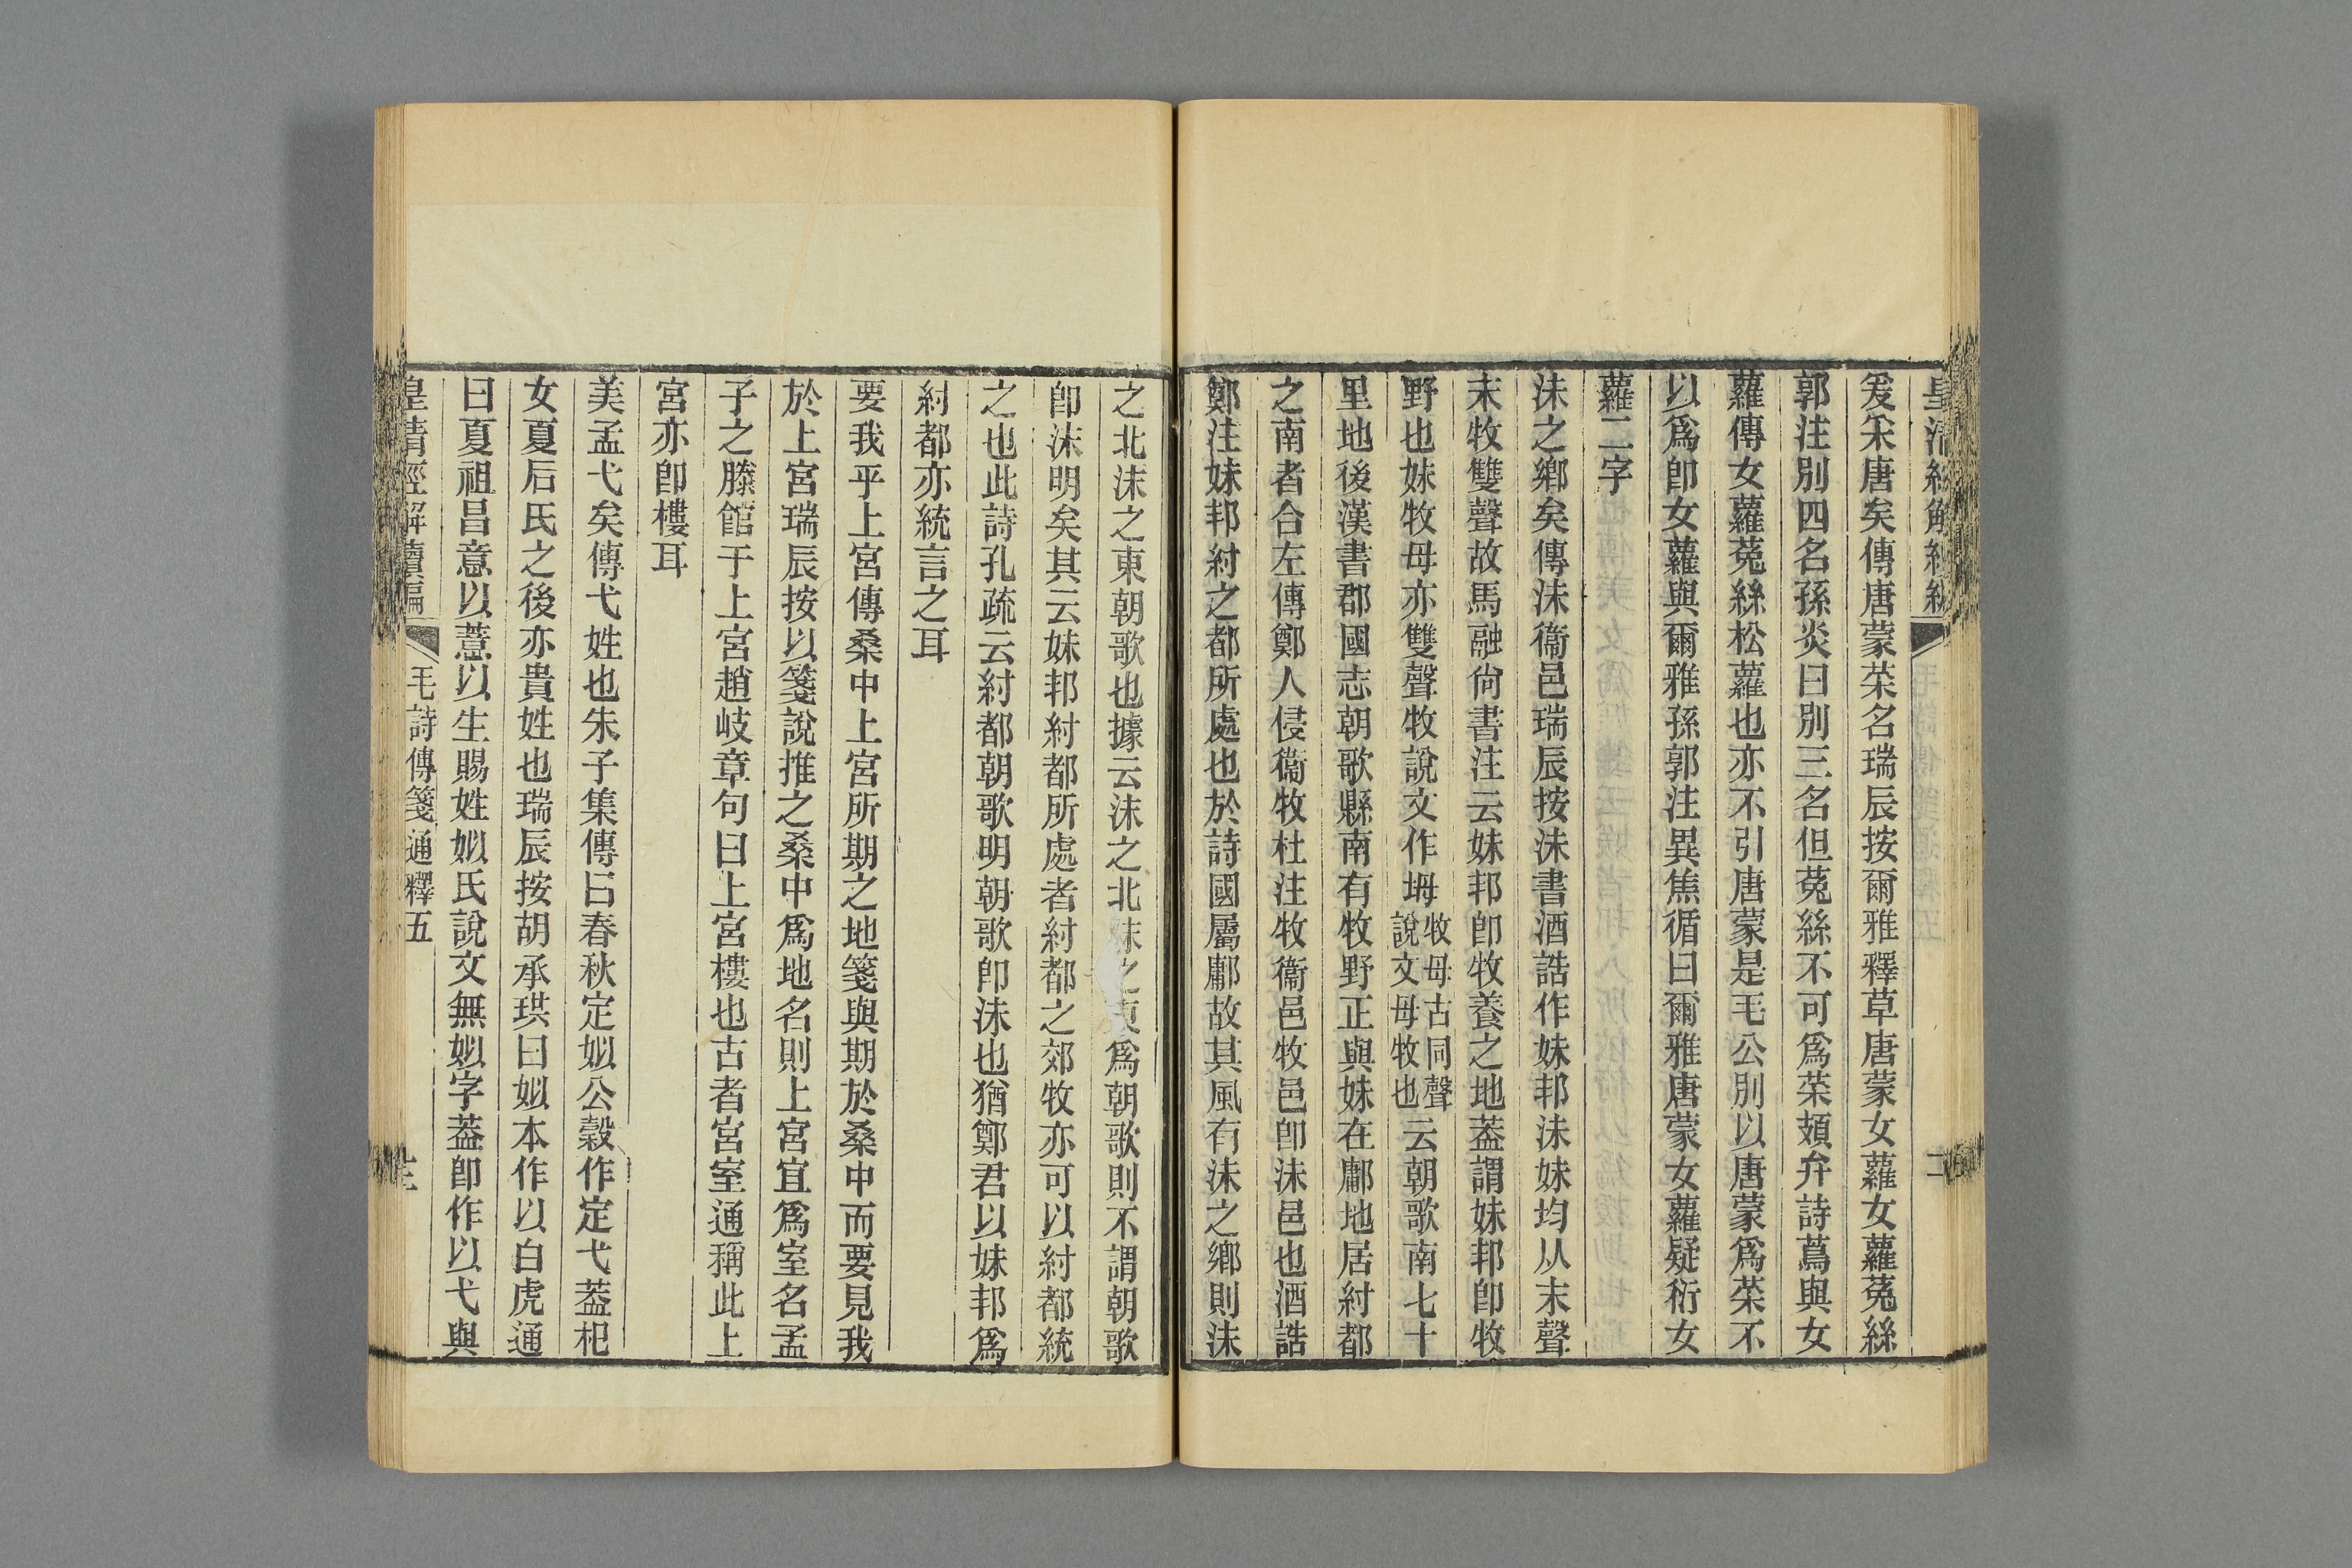 皇清經解續編
二
爰采唐矣傳唐蒙菜名瑞辰按爾雅釋草唐蒙女蘿女蘿菟絲
郭注別四名孫炎曰別三名但菟絲不可爲菜頍弁詩蔦與女
蘿傳女蘿菟絲松蘿也亦不引唐蒙是毛公別以唐蒙爲菜不
以爲卽女蘿與爾雅孫郭注異焦循曰爾雅唐蒙女蘿疑衍女
蘿二字
沬之鄉矣傳沬衞邑瑞辰按沬書酒誥作妹邦沬妹均从末聲
末牧雙聲故馬融尙書注云妹邦卽牧養之地葢謂妹邦卽牧
野也妹牧母亦雙聲牧說文作坶牧母古同聲說文母牧也云朝歌南七十
里地後漢書郡國志朝歌縣南有牧野正與妹在鄘地居紂都
之南者合左傳鄭人侵衞牧杜注牧衞邑牧邑卽沬邑也酒誥
鄭注妹邦紂之都所處也於詩國屬鄘故其風有沬之鄉則沬
之北沬之東朝歌也據云沬之北沬之東爲朝歌則不謂朝歌
卽沬明矣其云妹邦紂都所處者紂都之郊牧亦可以紂都統
之也此詩孔疏云紂都朝歌明朝歌卽沬也猶鄭君以妹邦爲
紂都亦統言之耳
要我乎上宮傳桑中上宮所期之地箋與期於桑中而要見我
於上宮瑞辰按以箋說推之桑中爲地名則上宮宜爲室名孟
子之滕館于上宮趙岐章句曰上宮樓也古者宮室通稱此上
宮亦卽樓耳
美孟弋矣傳弋姓也朱子集傳曰春秋定姒公穀作定弋葢杞
女夏后氏之後亦貴姓也瑞辰按胡承珙曰姒本作以白虎通
曰夏祖昌意以薏以生賜姓姒氏說文無姒字葢卽作以弋與
皇清經解續編
毛詩傳箋通釋五